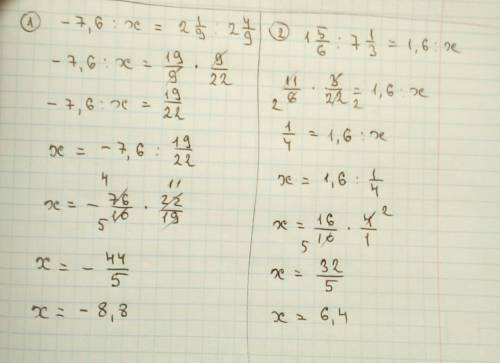 ① -7,6 : x = 2 1/9 : 2 4/9
-7,6 : x = 19/9 · 9/22
-7,6 : x = 19/22
x = -7,6 : 19/22
4 11
x = - 76/10 · 22/19
5
x = - 44/5
x = -8,8
② 1 5/6 : 7 1/3 = 1,6 : x
11/6 · 3/22 = 1,6 : x
2 2
1/4 = 1,6 : x
x = 1,6 : 1/4
x = 16/10 · 4/1
5 2
x = 32/5
x = 6,4